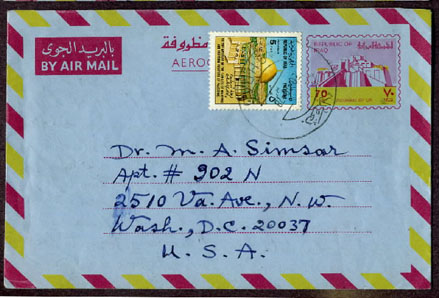 بالبريد الجوي
BY AIR MAIL
مظروفة
AEROG
REPUBLIC OF IRAQ
5
REPUBLIC OF
IRAQ
Dr. M. A. Simsar
Apt. # 902 N
2510 Va. Ave., N. W.
Wash., D.C. 20037
U. S. A.